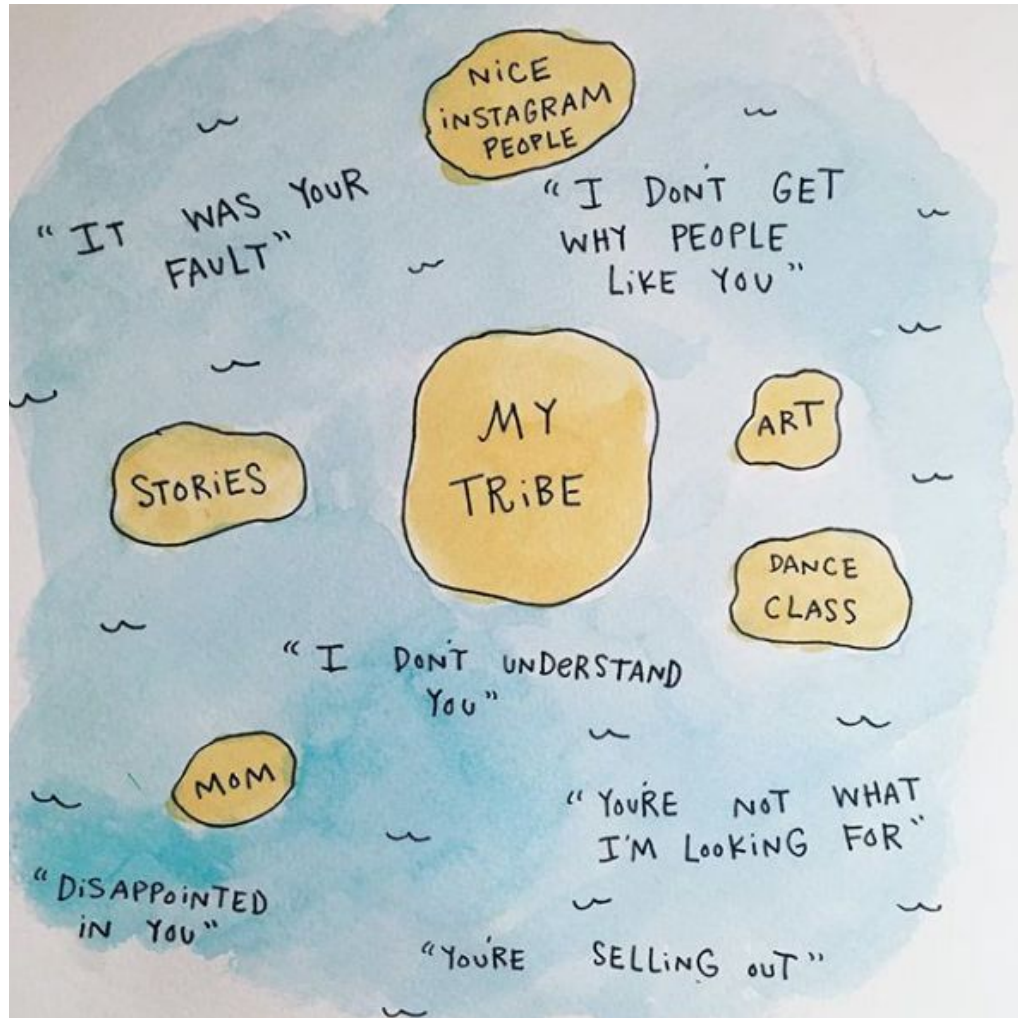 NiCE
iNSTAGRAM
PEOPLE
"IT WAS YOUR
FAULT"
"I DON'T GET
WHY PEOPLE
LiKE YOU"
MY
TRiBE
ART
STORiES
DANCE
CLASS
"I DON'T UNDeRSTAND
YOU"
MOM
"YOU'RE NOT WHAT
I'M LOOKiNG FOR"
"DiSAPPOiNTED
iN YOU"
"YOU'RE SELLiNG OUT"